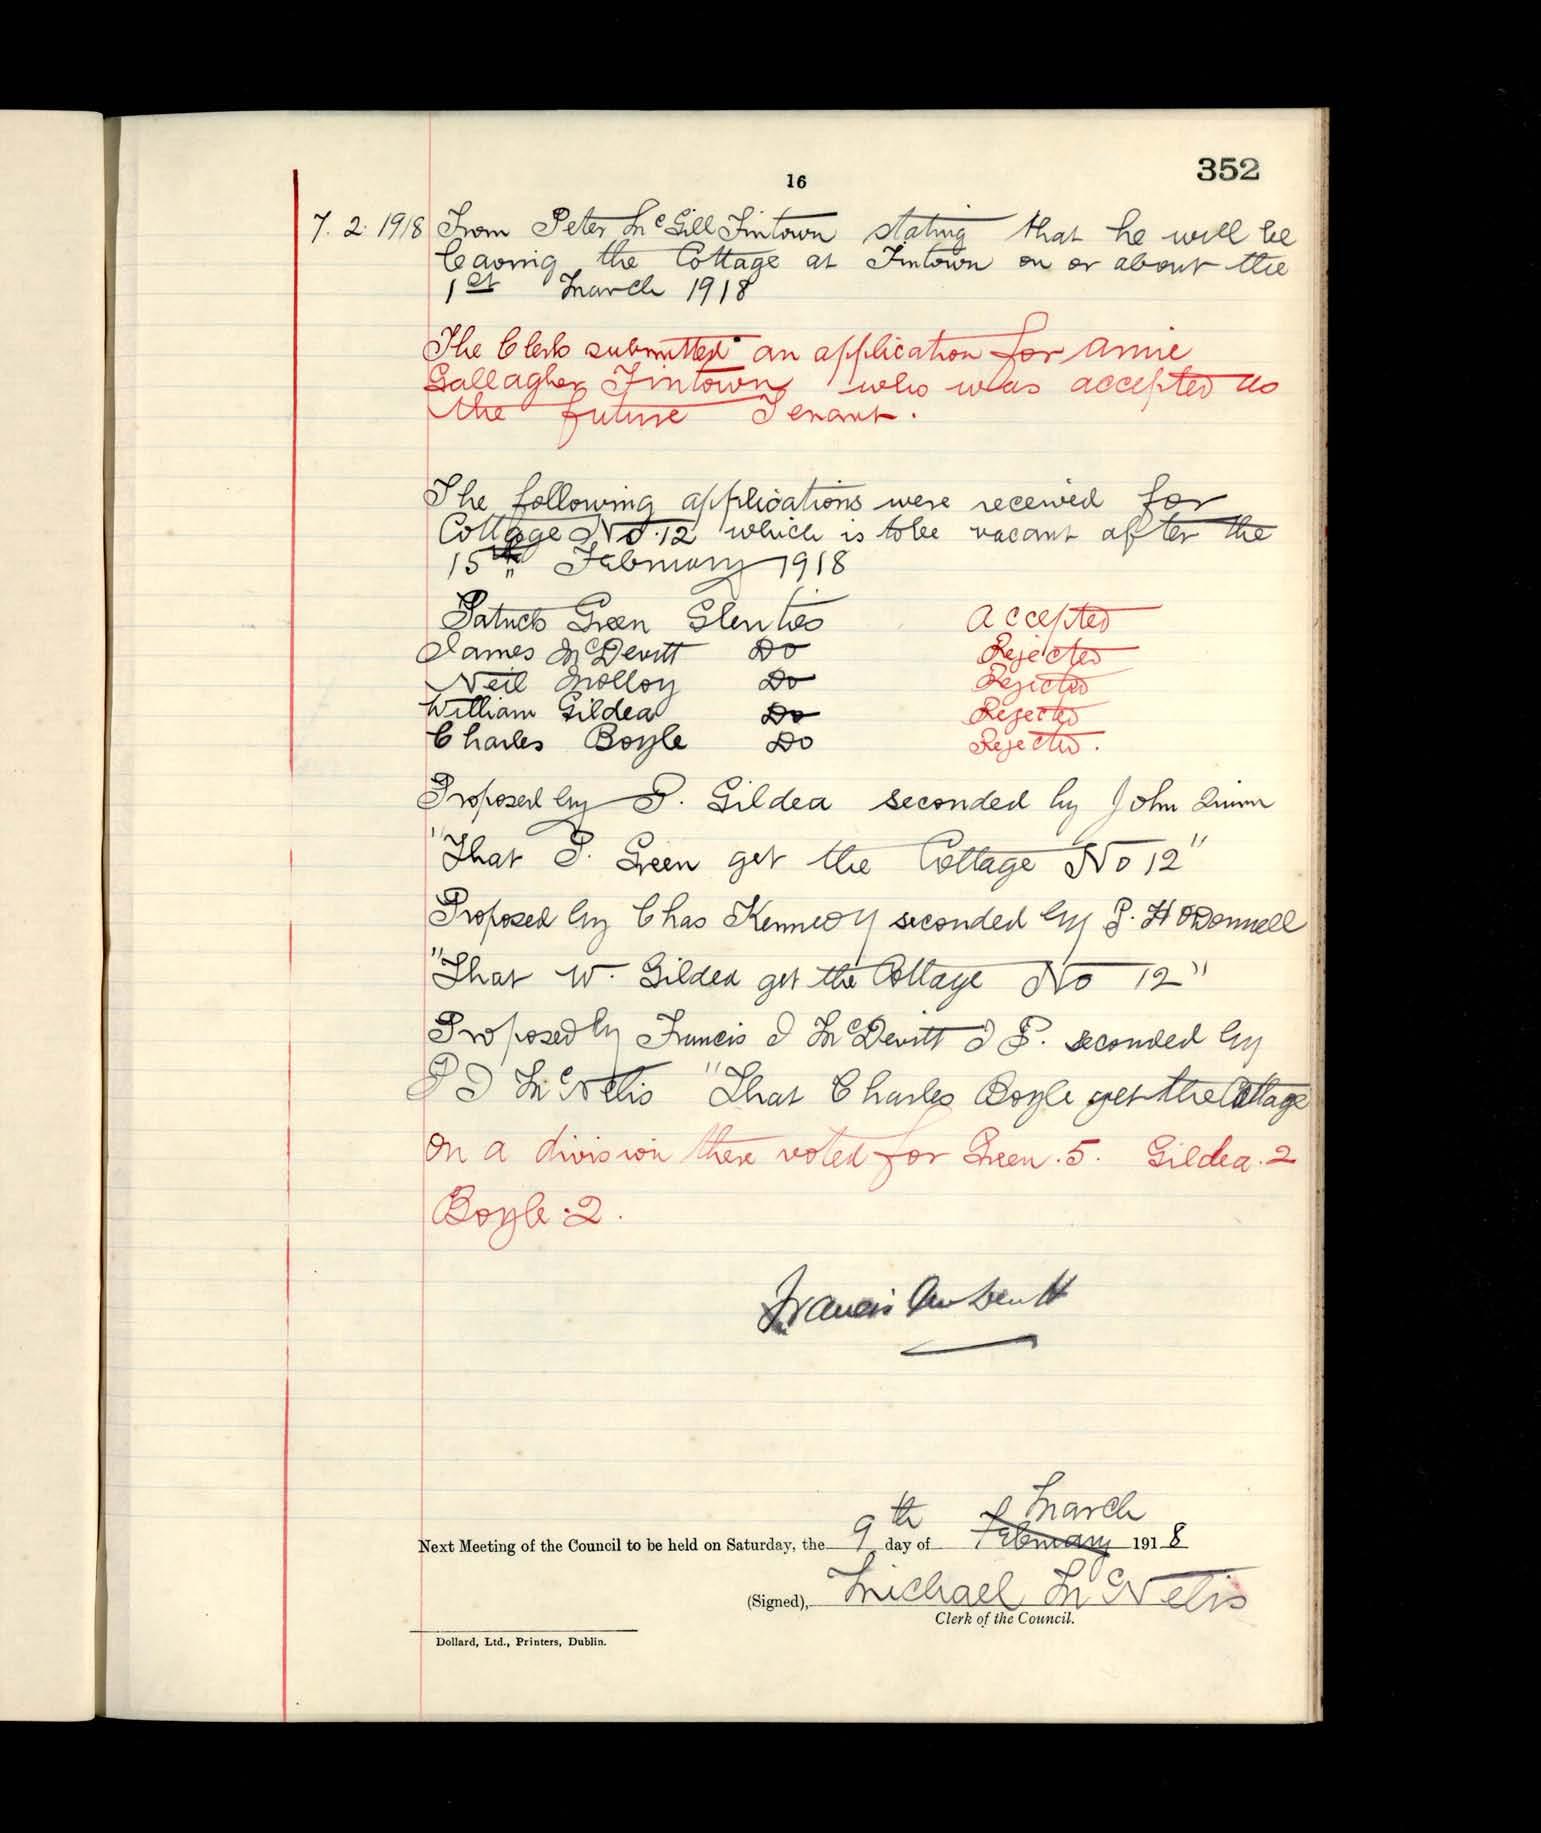 352
16
7. 2. 1918 From Peter McGill Fintown stating that he will be
leaving the Cottage at Fintown on or about the
1st March 1918
The Clerk submitted an application for Annie
Gallagher Fintown who was accepted as
the future Tenant.
The following applications were received for
Cottage No. 12 which is to be vacant after the
15th February 1918
Patrick Green Glenties Accepted
James McDevitt Do Rejected
Neil Molloy Do Rejected
William Gildea Do Rejected
Charles Boyle Do Rejected.
Proposed by P. Gildea seconded by John Quinn
"That P. Green get the Cottage No 12"
Proposed by Chas Kennedy seconded by P. H O'Donnell
"That W. Gildea get the Cottage No 12"
Proposed by Francis J McDevitt J P. seconded by
P J McNelis "That Charles Boyle get the Cottage
On a division there voted for Green. 5. Gildea. 2
Boyle. 2.
Francis
Next Meeting of the Council to be held on Saturday, the 9th day of February March 1918
(Signed), Michael McNelis
Clerk of the Council.
Dollard, Ltd., Printers, Dublin.